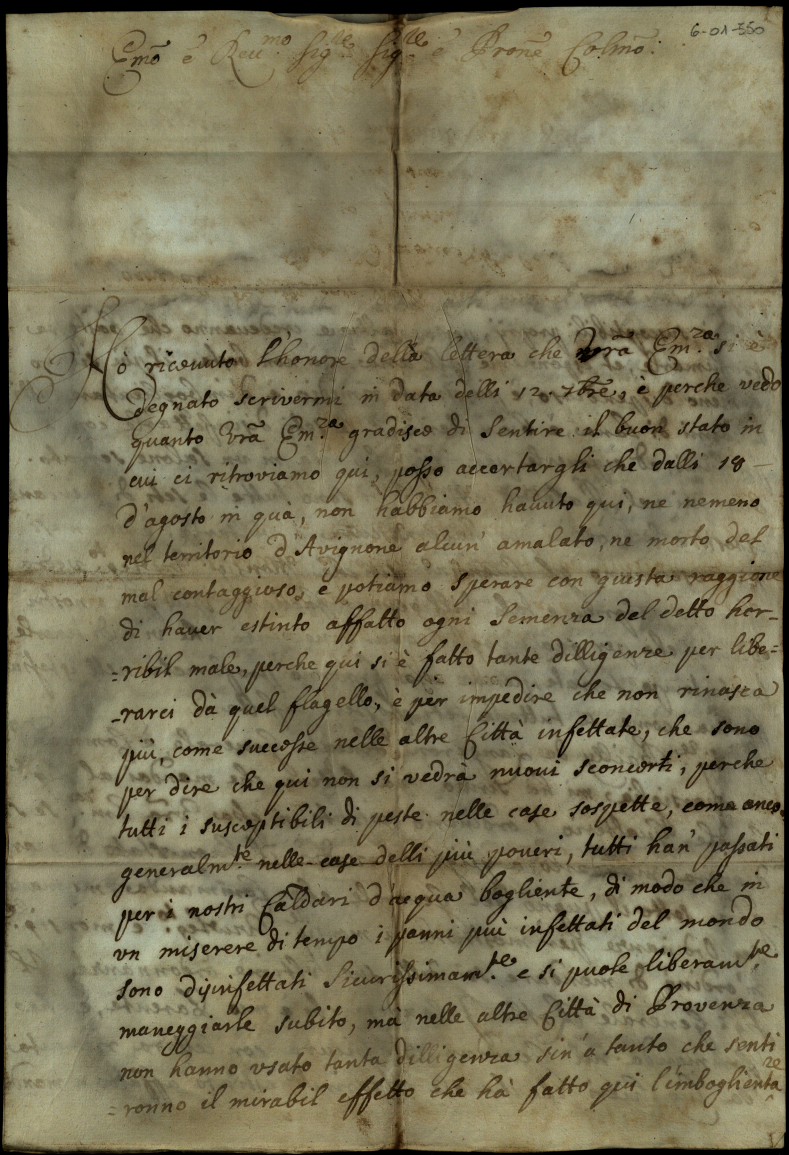 6-01-550
Emõ è Reu.mo Sig.re Sig.re è Pronẽ Colmõ:
Hò riceuuto l'honore della lettera che Vrã Em.za si è
degnato scrivermi in data delli 12. 7bre, è perche vedo
quanto Vrã Em.za gradisce di sentire il buon stato in
cui ci ritroviamo qui, posso accertargli che dalli 18
d'agosto in quà, non habbiamo hauuto qui, ne nemeno
nel territorio d'Avignone alcun' amalato, ne morto del
mal contaggioso, e potiamo sperare con giusta raggione
di hauer estinto affatto ogni semenza del detto hor-
=ribil male, perche qui si è fatto tante dilligenze per libe=
-rarci dà quel flagello, è per impedire che non rinasca
più, come successe nelle altre Città infettate, che sono
per dire che qui non si vedrà nuoui sconcerti, perche
tutti i susceptibili di peste nelle case sospette, come anco
generalm.te nelle case delli più poueri, tutti han' passati
per i nostri Caldari d'acqua bogliente, di modo che in
vn miserere di tempo i panni più infettati del mondo
sono disinfettati sicurissimam.te e si puole liberam.te
maneggiarle subito, mà nelle altre Città di Provenza
non hanno vsato tanta dilligenza sin' a tanto che senti
=ronno il mirabil effetto che hà fatto qui l'imboglienta